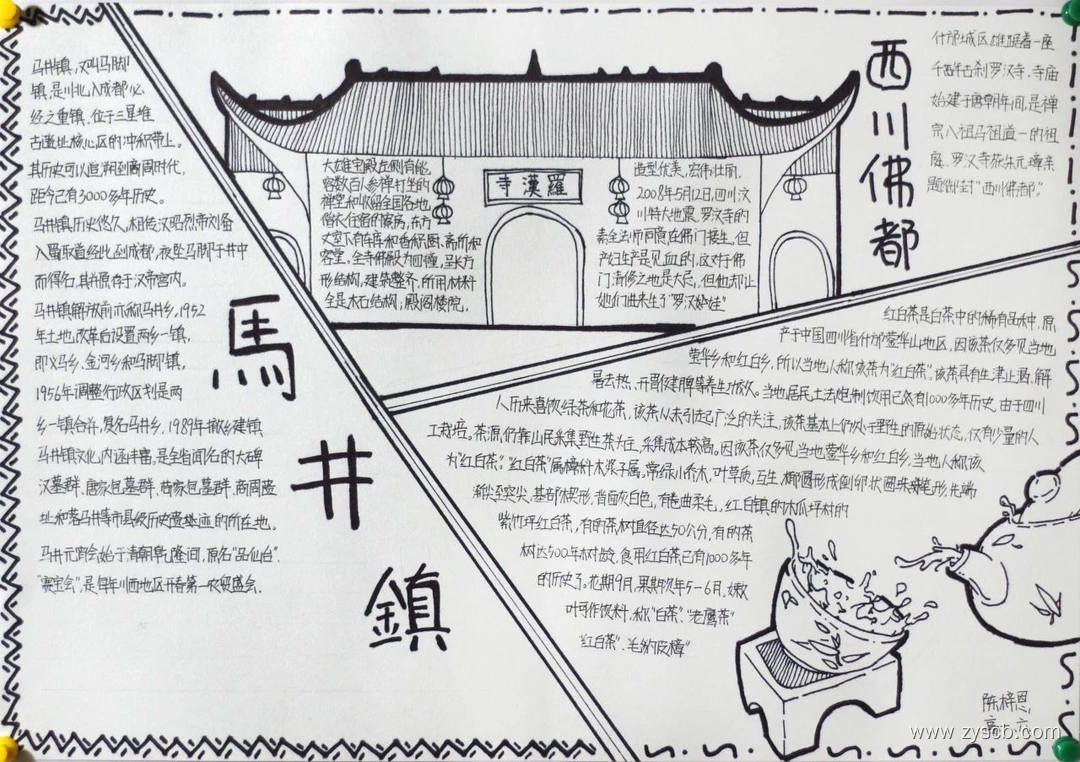 马井镇,又叫马脚
镇,是川北入成都必
经之重镇.位于三星堆
古遗址核心区的冲积带上。
其历史可以追溯到商周时代,
距今已有3000多年历史。
马井镇历史悠久,相传汉昭烈帝刘备
入蜀取道经此到成都,夜坠马脚于井中
而得名,其井原存于汉帝宫内。
马井镇解放前亦称马井乡,1952
年土地,改革后设置两乡一镇,
即义马乡、金河乡和马脚镇,
1956年调整行政区划是两
乡一镇合并,复名马井乡,1989年撤乡建镇
马井镇文化内涵丰富,是全省闻名的大碑
汉墓群、唐家包墓群、商周遗
址和落马井等市县级历史遗迹的所在地。
马井元宵会始于清朝乾隆间,原名"品仙台".
"赛宝会",是每年川西地区开春第一农贸盛会.
馬
井
鎮
大雄宝殿左侧有能
容数百人参禅打坐的
禅堂和收留全国各地
僧衣住宿的寮房,东方
大堂下有车库和香积厨、斋所和
客堂,全寺佛殿为四幢,呈长方
形结构,建筑整齐,所用材料
全是木石结构;殿阁楼院,
寺漢羅
造型优美,宏伟壮丽.
2008年5月12日,四川汶
川特大地震,罗汉寺的
素全法师同意在佛门接生,但
产妇生产是见血的,这对于佛
门清修之地是大忌,但他却让
她们进来生了"罗汉娃娃"
西
川
佛
都
什邡城区雄踞着一座
千百年古刹罗汉寺.寺庙
始建于唐朝年间,是禅
宗八祖马祖道一的祖
庭.罗汉寺
题御封"西川佛都。"
红白茶是白茶中的稀有品木中,原
产于中国四川省什邡蓥华山地区,因该茶仅多见当地
蓥华乡和红白乡,所以当地人称该茶为"红白茶".该茶具有生津止渴、解
暑去热、开胃健脾等养生功效。当地居民土法炮制饮用已然有1000多年历史,由于四川
人历来喜饮绿茶和花茶,该茶从未引起广泛的关注,该茶基本上仍处于野生的原始状态,仅有少量的人
工栽培。茶源仍靠山民采集野生茶为主,采集成本较高。因该茶仅多见当地蓥华乡和红白乡,当地人称该
为"红白茶"."红白茶"属樟科木浆子属,常绿小乔木,叶革质,互生,椭圆形成倒卵状披针形,先端
渐尖至突尖,基部楔形,背面灰白色,有卷曲柔毛,红白镇的木瓜坪村的
紫竹坪红白茶,有的茶树直径达50公分,有的茶
树达500年树龄,食用红白茶已有1000多年
的历史了。花期9月,果期次年5-6月,嫩
叶可作饮料,称"白茶"、"老鹰茶"
"红白茶"、毛豹皮樟"
陈梓恩
高一六
www.zyscb.com